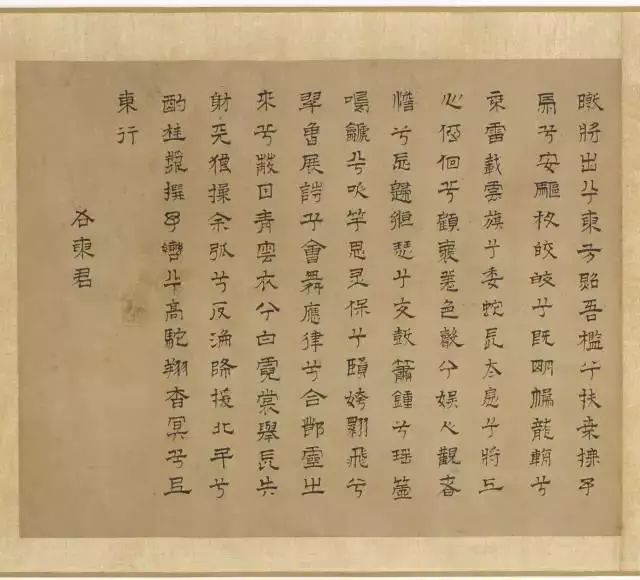 暾將出兮東方照吾檻兮扶桑撫予
馬兮安驅夜皎皎兮既明駕龍輈兮
乘雷載雲旗兮委蛇長太息兮將上
心低佪兮顧懷羌色聲兮娛人觀者
憺兮忘歸緪瑟兮交鼓簫鍾兮瑤簴
鳴篪兮吹竽思靈保兮賢姱翾飛兮
翠曾展詩兮會舞應律兮合節靈之
來兮蔽日青雲衣兮白霓裳舉長矢
射天狼操余弧兮反淪降援北斗兮
酌桂漿撰予轡兮高駝翔杳冥兮且
東行
右東君